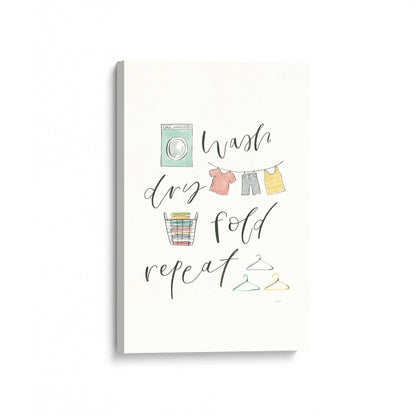 wash
dry
fold
repeat